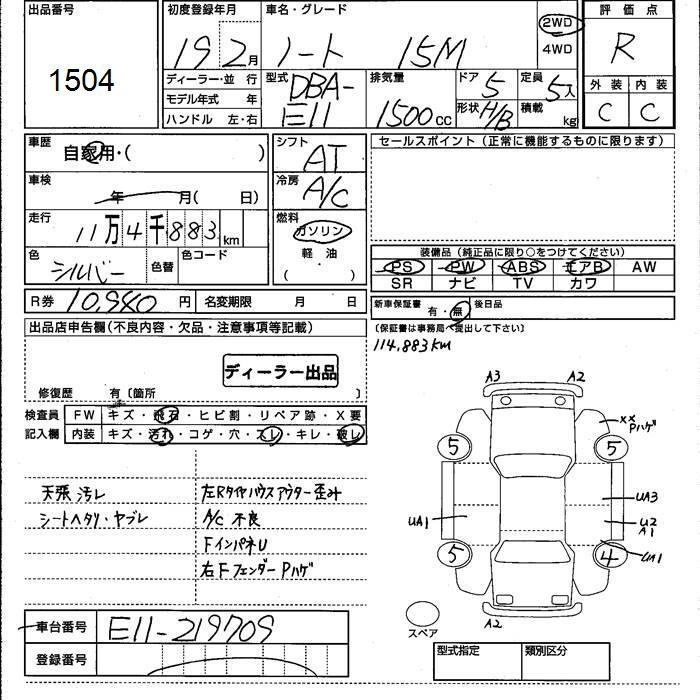 出品番号 初度登録年月 車名・グレード 2WD 評価点
1504 19 2月 ノート 15M 4WD R
ディーラー・並行 型式 DBA-E11 排気量 1500cc ドア 5 形状 H/B 定員 5人 積載 kg 外装 内装
モデル年式 年 C C
ハンドル 左・右
車歴 自家用・( ) シフト AT セールスポイント(正常に機能するものに限ります)
車検 年 月( 日) 冷房 A/C
走行 11万4千883km 燃料 ガソリン
色 シルバー 色替 色コード 軽油 ( )
装備品(純正品に限り○をつけてください)
PS PW ABS エアB AW
SR ナビ TV カワ
R券 10,980円 名変期限 月 日 新車保証書 有・無 後日品
(保証書は事務局へ提出して下さい)
出品店申告欄(不良内容・欠品・注意事項等記載)
114,883km
ディーラー出品
修復歴 有〔箇所 〕
検査員 FW キズ・飛石・ヒビ割・リペア跡・X要
記入欄 内装 キズ・汚れ・コゲ・穴・スレ・キレ・破レ
天張汚レ 左Rタイヤハウスアウター歪み
シートヘタリ・ヤブレ A/C不良
FインパネU
右FフェンダーPハゲ
A3 A2
××
Pハゲ
5 5
UA3
UA1 U2
A1
5 4 UA1
スペア A2
車台番号 E11-219709
登録番号
型式指定 類別区分